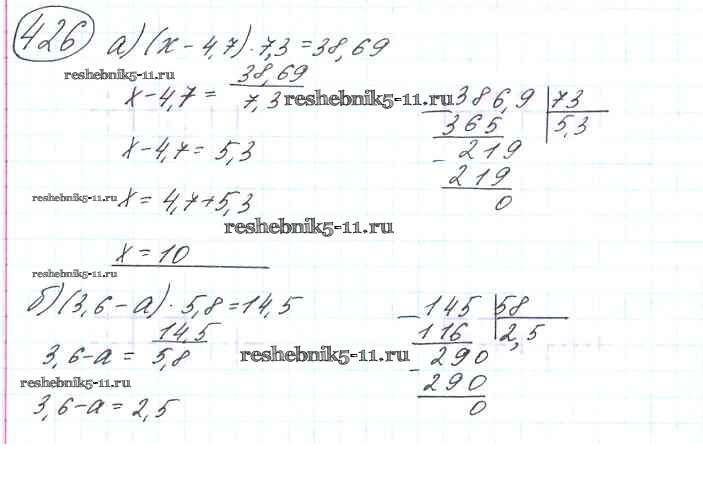 426 а) (x − 4,7) · 7,3 = 38,69
reshebnik5-11.ru
x − 4,7 = 38,69 / 7,3
reshebnik5-11.ru
x − 4,7 = 5,3
reshebnik5-11.ru
x = 4,7 + 5,3
reshebnik5-11.ru
x = 10
386,9 | 73
365 | 5,3
− 219
219
0
reshebnik5-11.ru
б) (3,6 − а) · 5,8 = 14,5
3,6 − а = 14,5 / 5,8
reshebnik5-11.ru
reshebnik5-11.ru
3,6 − а = 2,5
− 145 | 58
116 | 2,5
− 290
290
0
reshebnik5-11.ru